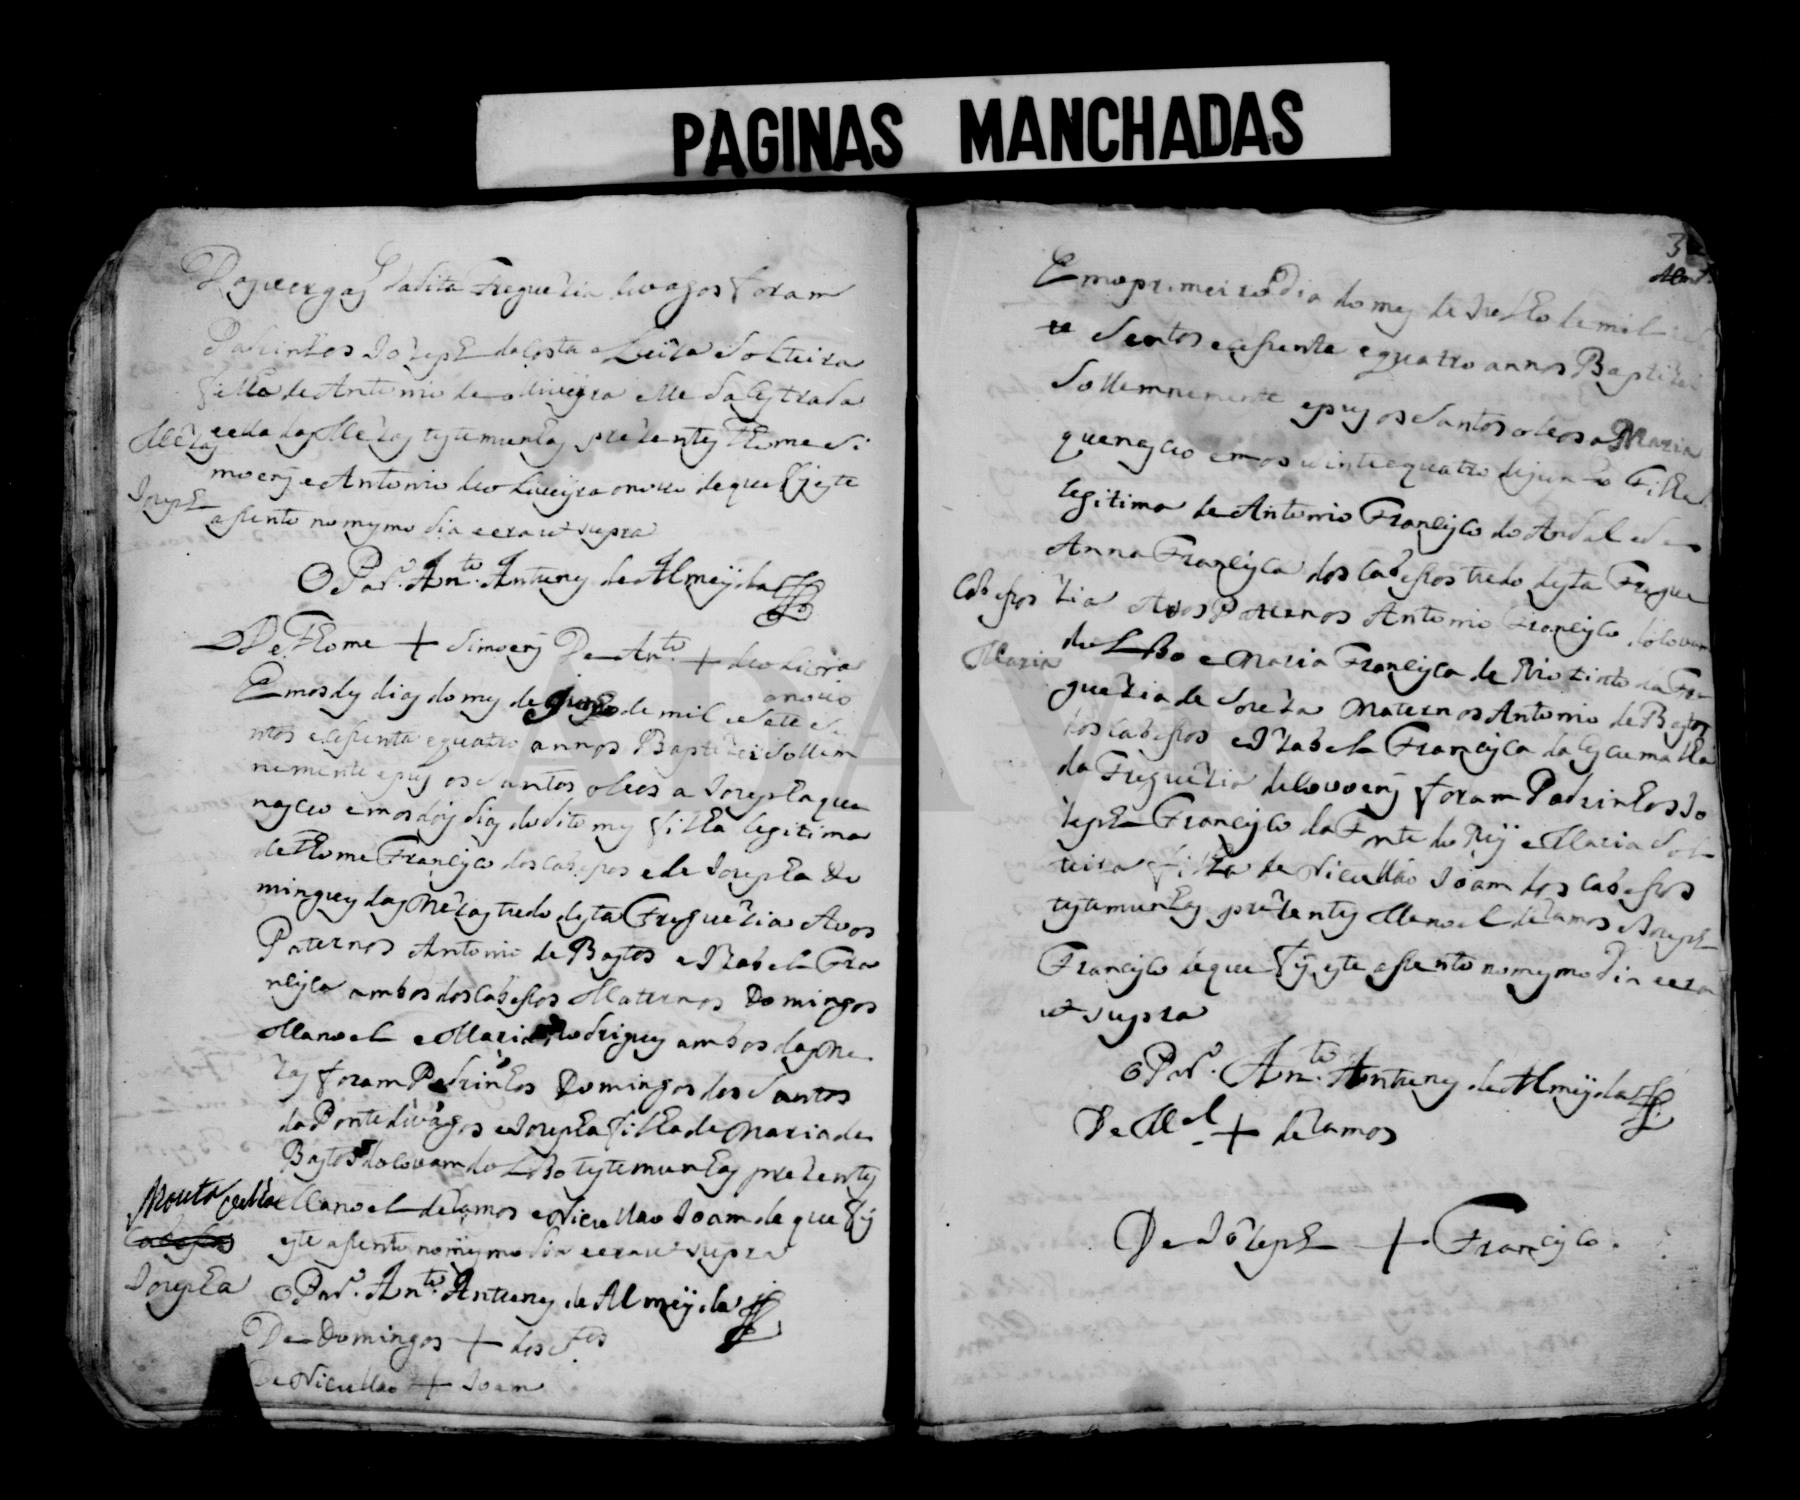 PAGINAS MANCHADAS
da dita Freguezia de vagos foram
Padrinhos Jozeph da Costa e Luiza Solteira
filha de Antonio de oliueyra e Me da Estrada
Mezas
e ella das Mezas testemunhas prezentes Thome Si
moens e Antonio de oliueyra o nouo de que fis este
Jozeph
assento no mesmo dia e era ut supra
O Par.º An.to Antunes de Almeyda
De Thome + Simoens De An.to + de oliura
o nouo
Em os des dias do mes de Junho de mil e sete se
ntos e sesenta e quatro annos Baptizei Sollem
nemente e pus os santos oleos a Jozepha que
nasceo em os dois dias do dito mes filha legitima
de Thome Francisco dos Cabessos e de Jozepha Do
mingues das Mezas tudo desta Freguezia Avos
Paternos Antonio de Bastos e Izabel Fra
ncisca ambos dos Cabessos Maternos Domingos
Manoel e Maria Rodrigues ambos das Me
zas foram Padrinhos Domingos dos Santos
da Ponte de Vagos e Jozepha filha de Maria de
Bastos do Covam do Lobo testemunhas prezentes
Manoel de Ramos e Nicullao Joam de que fis
Cabessos
este assento no mesmo dia e era ut supra
Jozepha
O Par.º An.to Antunes de Almeyda
De Domingos + dos S.tos
De Nicullao + Joam
3
Em o primeiro Dia do mes de Julho de mil e
te Sentos e sesenta e quatro annos Baptizei
Sollemnemente e pus os santos oleos a Maria
que nasceo em os uinte e quatro de junho Filha
legitima de Antonio Francisco do Andal e de
Anna Francisca dos Cabessos tudo desta Fregue
Cabessos
zia Avos Paternos Antonio Francisco do Covam
do Lobo e Maria Francisca de Rio tinto da Fre
Maria
guezia de Soreza Maternos Antonio de Bastos
dos Cabessos e Izabel Francisca da Escumalha
da Freguezia de Covoens foram Padrinhos Jo
zeph Francisco da Fonte do Rey e Maria Sol
teira filha de Nicullao Joam dos Cabessos
testemunhas prezentes Manoel de Ramos e Jozeph
Francisco de que fis este assento no mesmo Dia e era
ut supra
O Par.º An.to Antunes de Almeyda
De M.el + de Ramos
De Jozeph + Francisco.